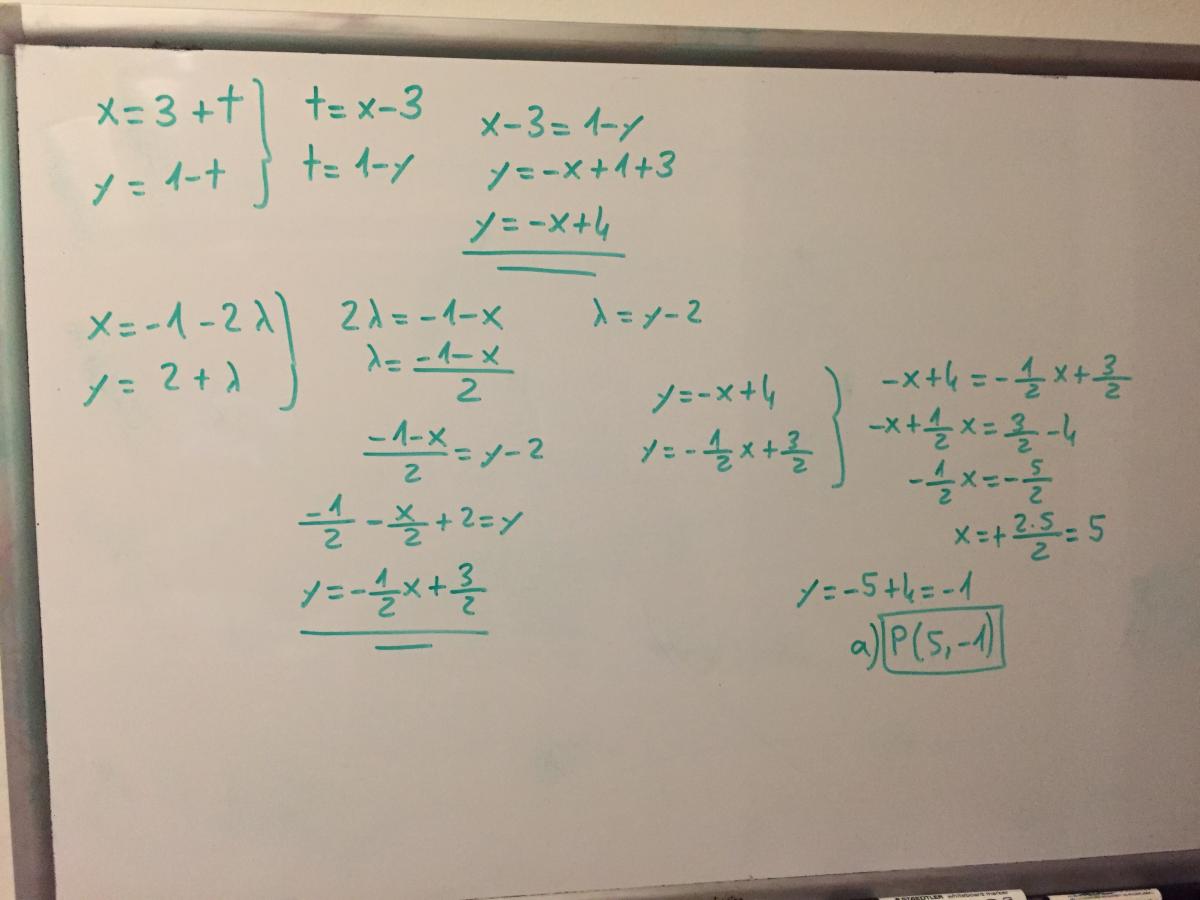 x=3+t } t=x-3
y=1-t } t=1-y
x-3=1-y
y=-x+1+3
y=-x+4
x=-1-2λ }
y=2+λ }
2λ=-1-x
λ=(-1-x)/2
λ=y-2
(-1-x)/2=y-2
-1/2-x/2+2=y
y=-1/2x+3/2
y=-x+4 }
y=-1/2x+3/2 }
-x+4=-1/2x+3/2
-x+1/2x=3/2-4
-1/2x=-5/2
x=+2·5/2=5
y=-5+4=-1
a) P(5,-1)
STAEDTLER whiteboard marker